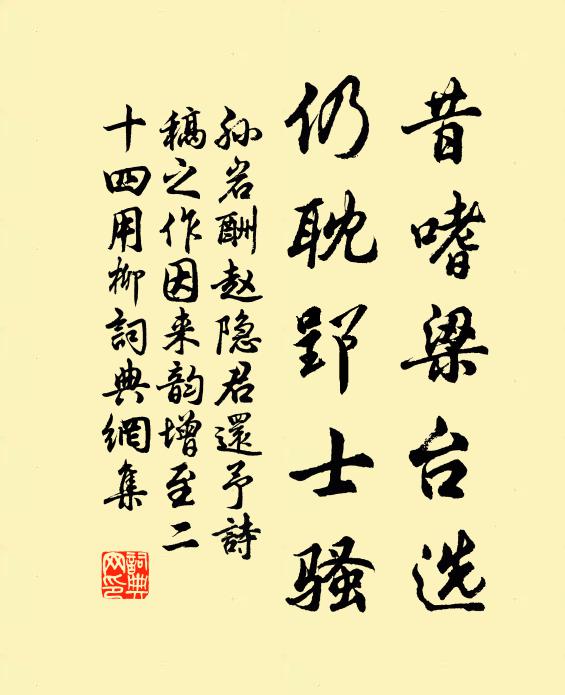 昔嗜梁台选
仍耽郢士骚
孙岩酬赵隐君還予詩
稿之作因来韵增至二
十四用柳詞典網集
詞典网印